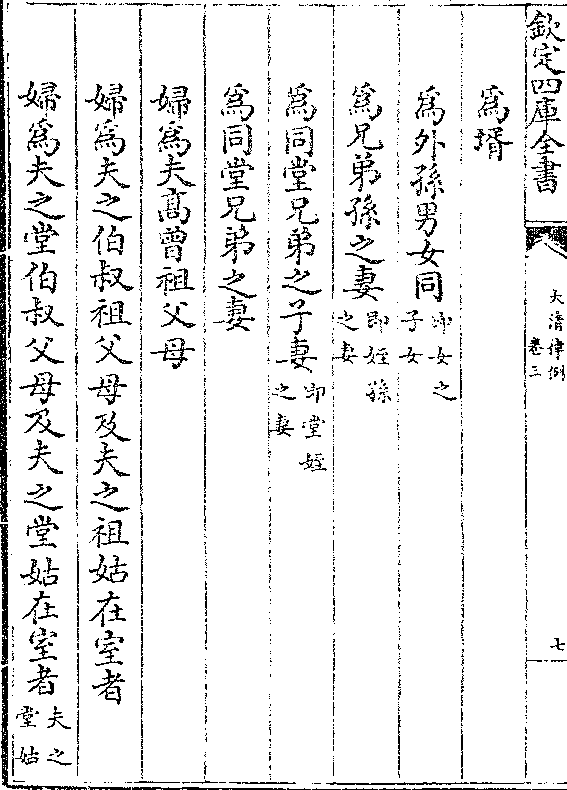 欽定四庫全書
大清律例
卷三
七
為壻
為外孫男女同即女之子女
為兄弟孫之妻即姪孫之妻
為同堂兄弟之子妻即堂姪之妻
為同堂兄弟之妻
婦為夫高曾祖父母
婦為夫之伯叔祖父母及夫之祖姑在室者
婦為夫之堂伯叔父母及夫之堂姑在室者夫之堂姑